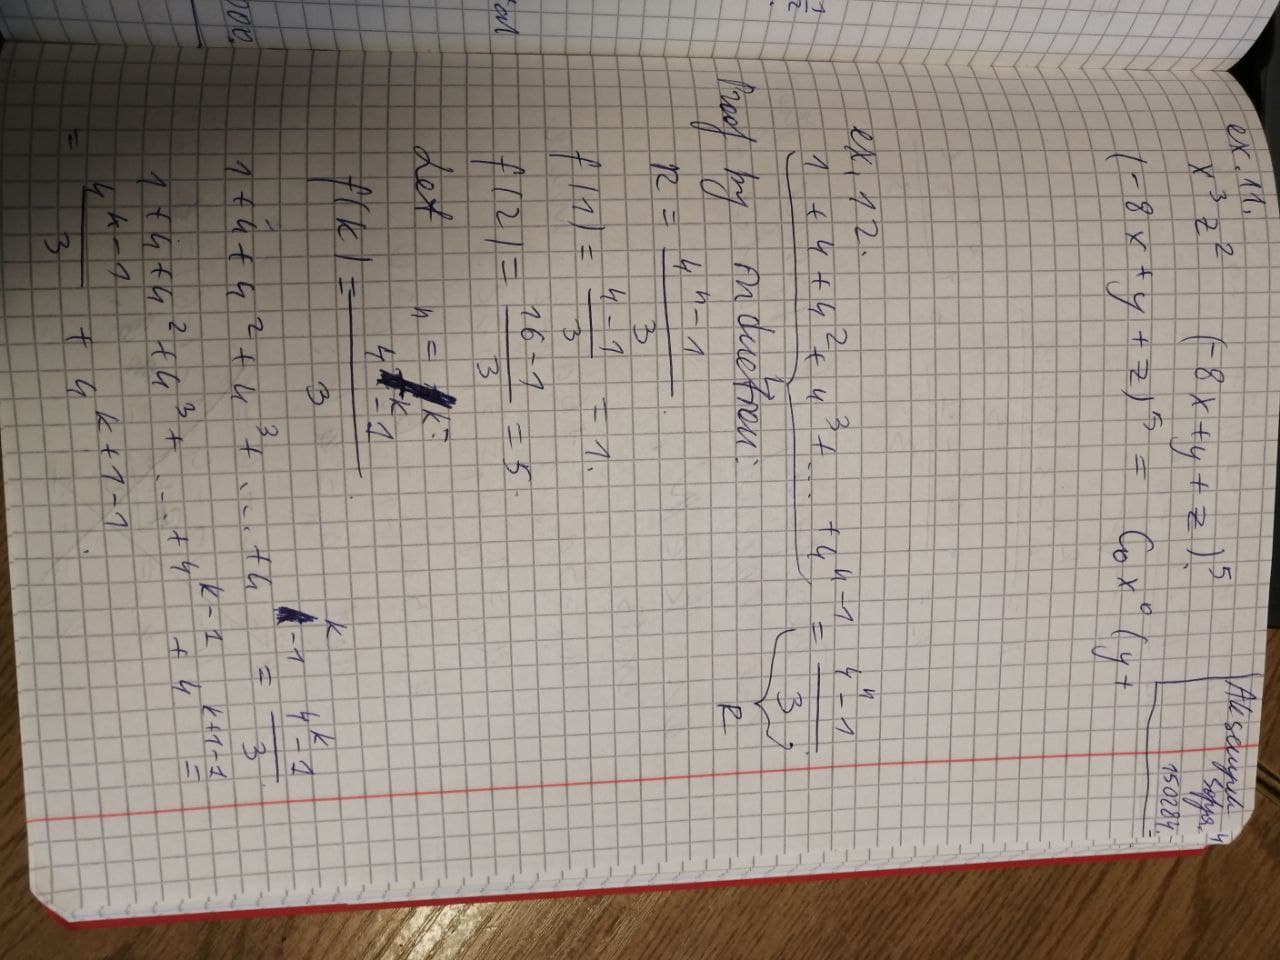 150284
ex. 11.
x³z² (-8x+y+z)⁵.
(-8x+y+z)⁵ = C₀x⁰(y+
ex. 12.
1 + 4 + 4² + 4³ + ... + 4ⁿ⁻¹ = (4ⁿ-1)/3
R
Proof by induction:
R = (4ⁿ-1)/3
f(1) = (4-1)/3 = 1.
f(2) = (16-1)/3 = 5.
Let n = k
f(k) = (4ᵏ-1)/3.
1+4+4²+4³+...+4ᵏ⁻¹ = (4ᵏ-1)/3
1+4+4²+4³+...+4ᵏ⁻¹ + 4ᵏ⁺¹⁻¹ =
= (4ᵏ-1)/3 + 4ᵏ⁺¹⁻¹.